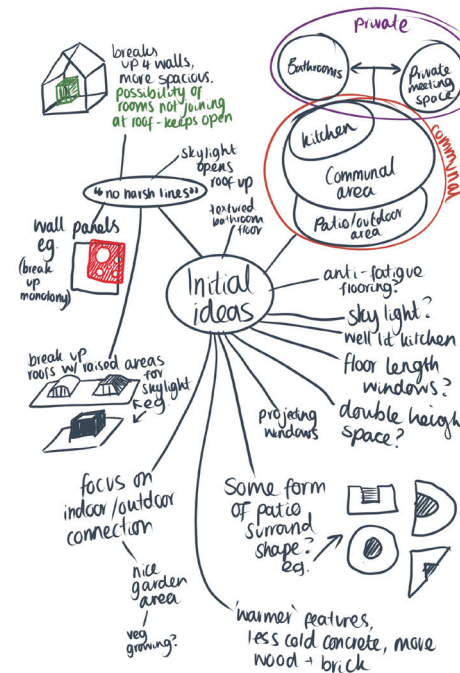 breaks
up 4 walls,
more spacious,
possibility of
rooms not joining
at roof - keeps open
private
Bathrooms
Private
meeting
space
communal
Kitchen
Communal
area
Patio/outdoor
area
skylight
opens
roof up
"no harsh lines"
textured
bathroom
floor
wall panels
eg.
(break
up
monotony)
Initial
ideas
anti-fatigue
flooring?
sky light?
well lit kitchen
floor length
windows?
double height
space?
projecting
windows
break up
roofs w/ raised areas
for
skylight
eg.
focus on
indoor/outdoor
connection
nice
garden
area
veg
growing?
Some form
of patio
surround
shape?
eg.
'warmer' features,
less cold concrete, more
wood + brick